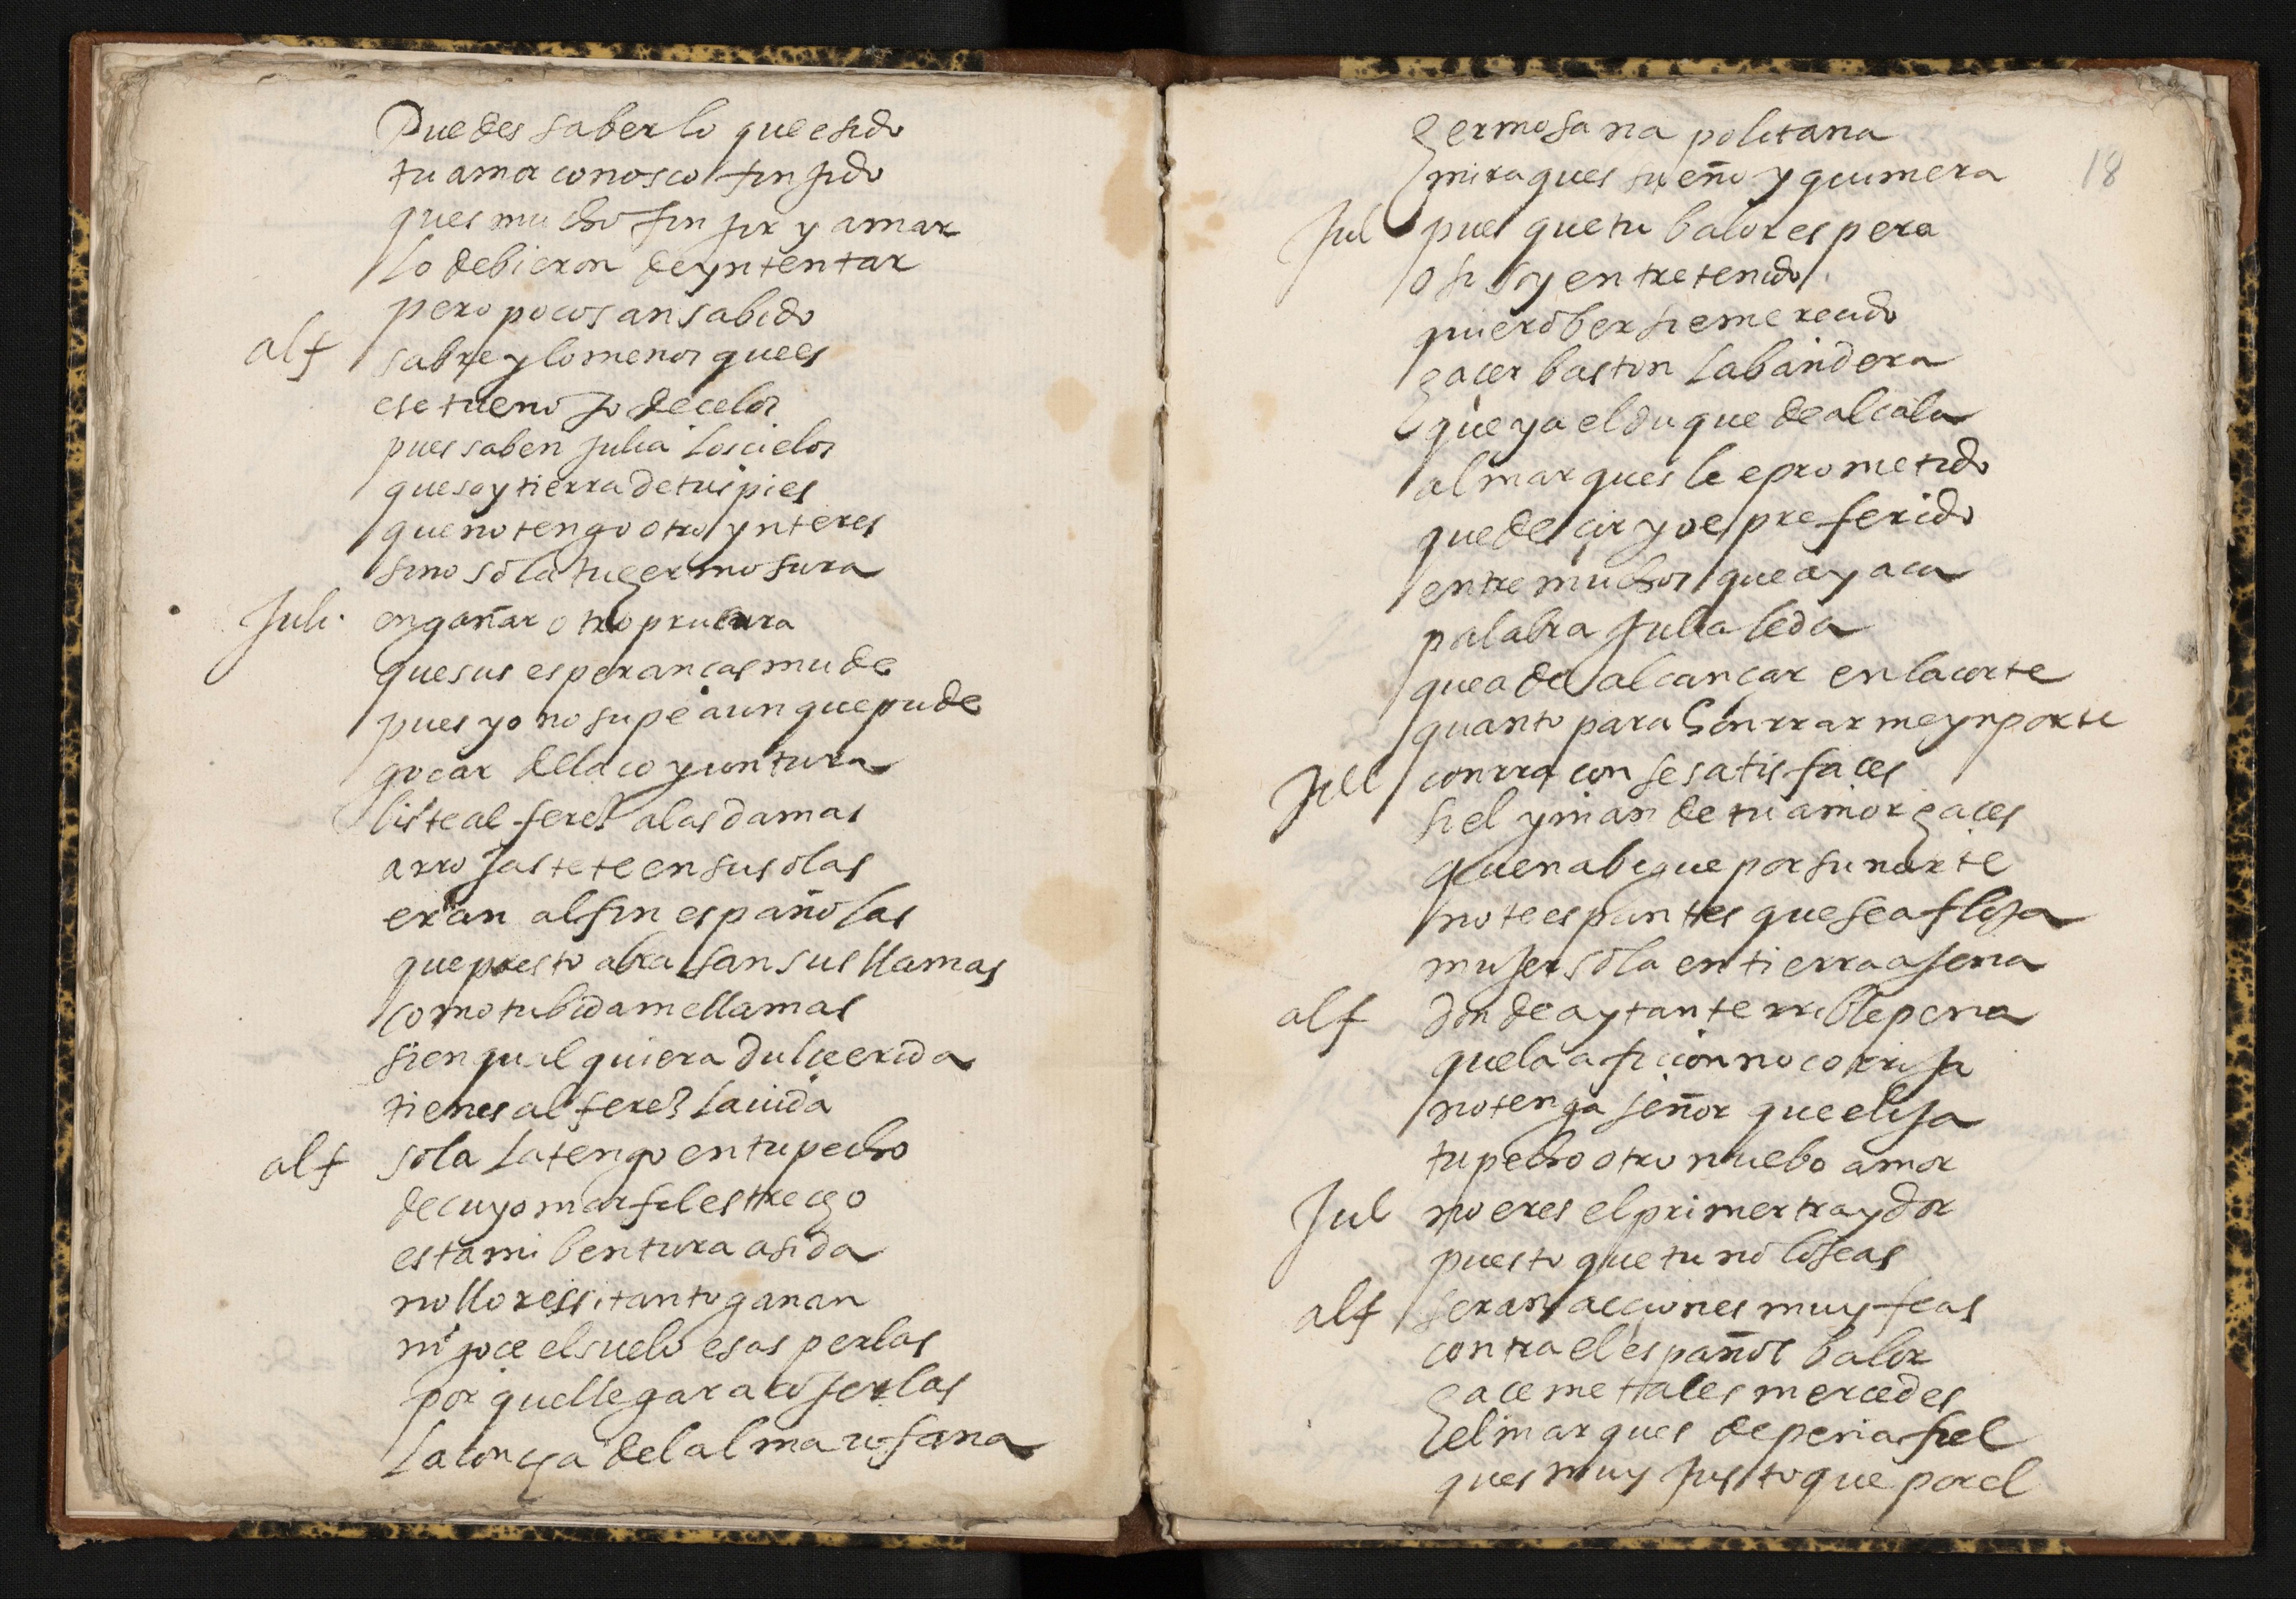 Puedes saber lo que e sido
tu amor conosco finjido
ques mucho finjir y amar
lo debieron de yntentar
pero pocos an sabido
alf sabre y lo menos que es
ese tu enojo de celos
pues saben julia los cielos
que soy tierra de tus pies
que no tengo otro ynteres
sino sola tu hermosura
Juli. engañar otro procura
que sus esperancas mude
pues yo no supe aunque pude
gocar del laco y untura
biste alferez a las damas
arrojastete en sus olas
eran al fin españolas
que presto abrasan sus llamas
como tu bida me llamas
si en qualquiera dulce erida
tienes alferez la uida
alf sola la tengo en tu pecho
de cuyo marfil estrecho
esta mi bentura asida
no llores si tanto ganan
ni goce el suelo esas perlas
porque llegara a cojerlas
la concha del alma ufana
hermosa napolitana
18
mira ques sueño y quimera
Jul pues que tu balor espera
o si soy entretenido
quiero ber si e merecido
hacer baston la bandera
que ya el duque de alcala
al marques le e prometido
que de ser yo el preferido
entre muchos que ay aca
palabra julia le da
que a de alcancar en la corte
quanto para honrrarme ynporte
Jul con rracon se satisfaces
si el yman de tu amor haces
quen abegue por su norte
no te espantes que se aflija
mujer sola en tierra ajena
alf donde ay tan terrible pena
que la aficion no corrija
no tenga señor que elija
tu pecho otro nuebo amor
Jul no eres el primer traydor
puesto que tu no lo seas
alf seran acciones muy feas
contra el español balor
haceme tales mercedes
el marques de peñafiel
ques muy justo que por el